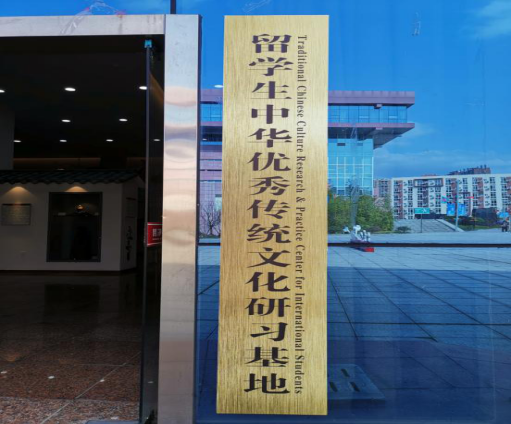 留学生中华优秀传统文化研习基地
Traditional Chinese Culture Research & Practice Center for International Students